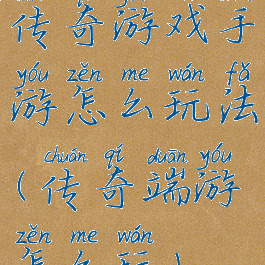 传奇游戏手
yóu zěn me wán fǎ
游怎么玩法
chuán qí duān yóu
(传奇端游
zěn me wán
怎么玩)